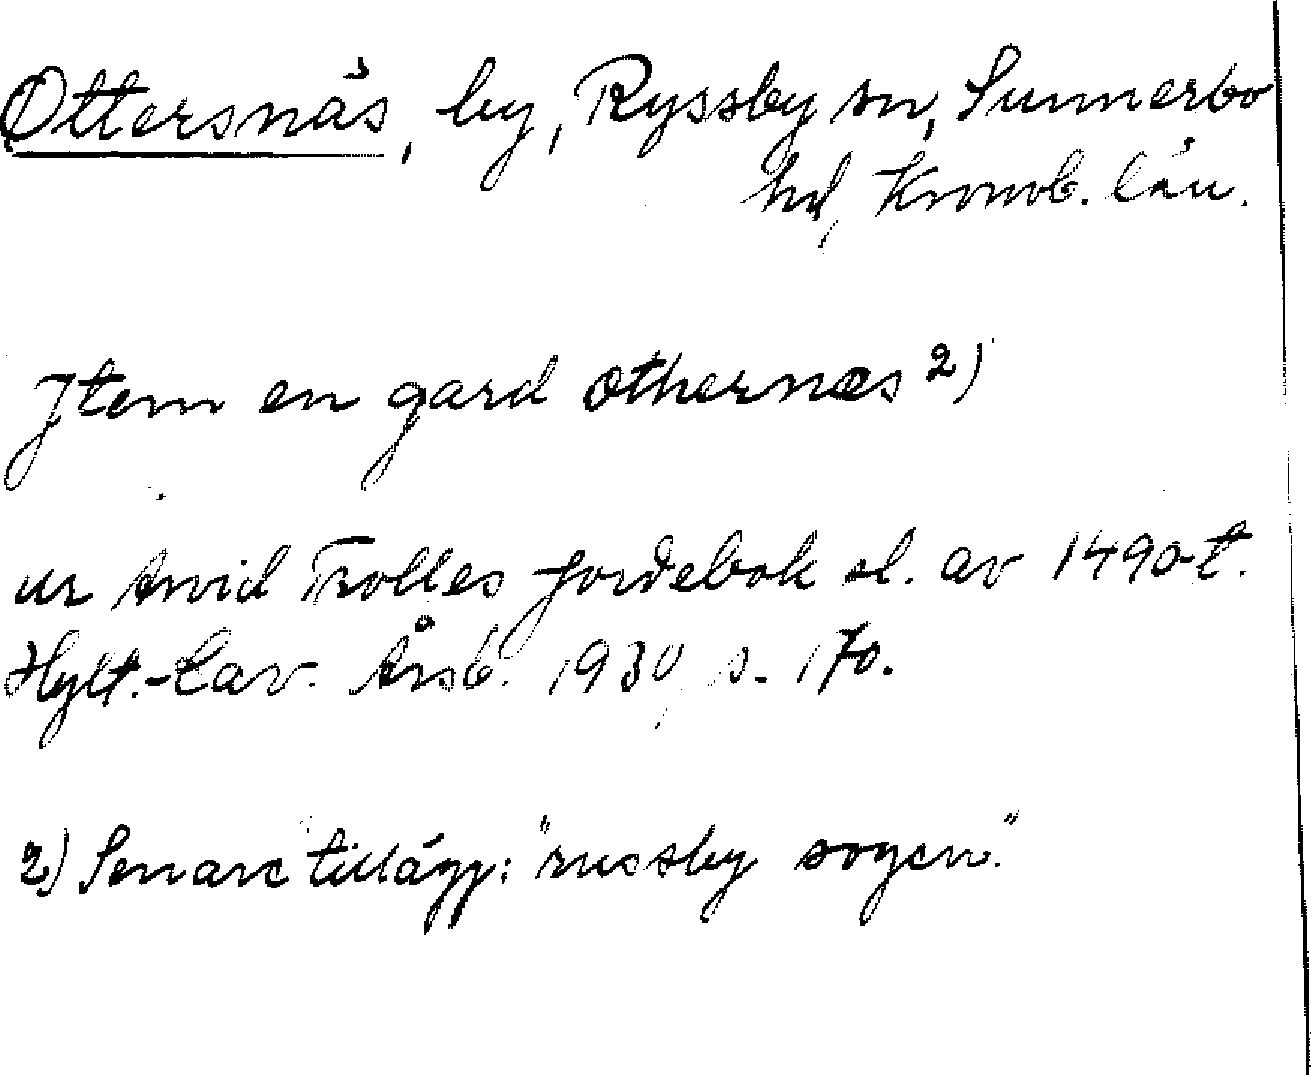 Ottersnäs, by, Ryssby sn, Sunnerbo
hd, Kronob. län.
Jtem en gard othernæs 2)
ur Arvid Trolles jordebok sl. av 1490-t.
Hylt.-Cav. Årsb. 1930, s. 170.
2) Senare tillägg: "russby sogen."